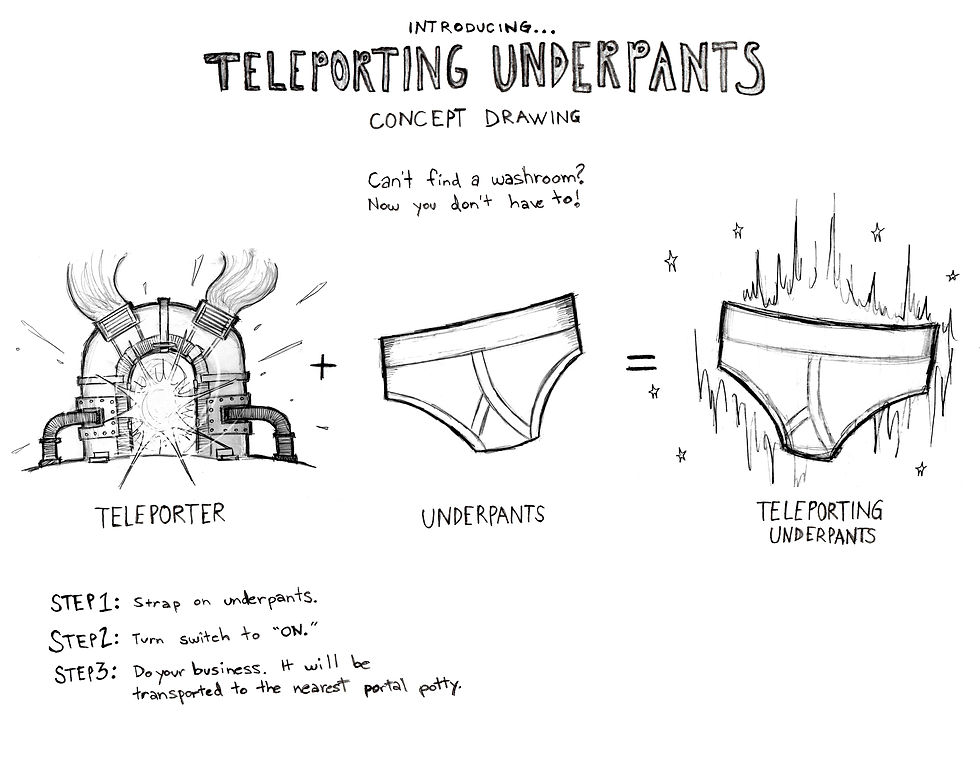 INTRODUCING...
TELEPORTING UNDERPANTS
CONCEPT DRAWING
Can't find a washroom?
Now you don't have to!
+
=
TELEPORTER
UNDERPANTS
TELEPORTING
UNDERPANTS
STEP1: Strap on underpants.
STEP2: Turn switch to "ON."
STEP3: Do your business. It will be
transported to the nearest portal potty.